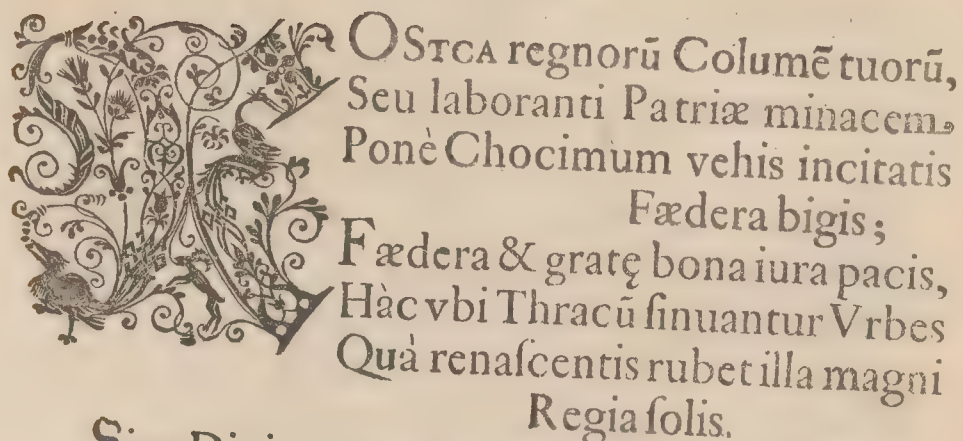 KOSTCA regnorū Columē tuorū,
Seu laboranti Patriæ minacem
Ponè Chocimum vehis incitatis
Fædera bigis;
Fædera & gratę bona iura pacis,
Hàc vbi Thracū ſinuantur Vrbes
Quà renaſcentis rubet illa magni
Regia ſolis.